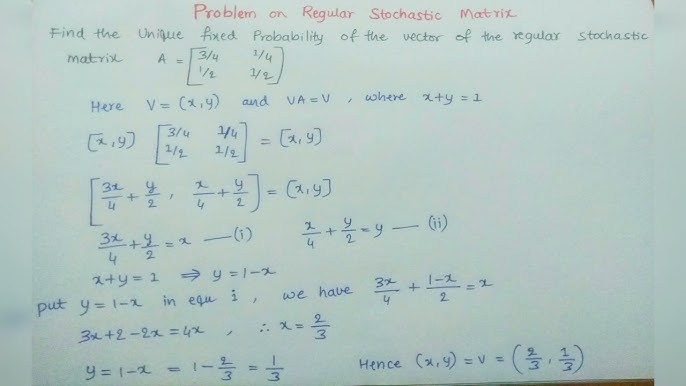 Problem on Regular Stochastic Matrix
Find the Unique fixed Probability of the vector of the regular stochastic
matrix A = [3/4 1/4
1/2 1/2]
Here V = (x, y) and VA = V , where x+y = 1
[x, y] [3/4 1/4
1/2 1/2] = [x, y]
[3x/4 + y/2 , x/4 + y/2] = [x, y]
3x/4 + y/2 = x —(i) x/4 + y/2 = y — (ii)
x+y = 1 ⇒ y = 1-x
put y = 1-x in equ i , we have 3x/4 + 1-x/2 = x
3x+2-2x = 4x , ∴ x = 2/3
y = 1-x = 1- 2/3 = 1/3 Hence (x, y) = V = (2/3 , 1/3)